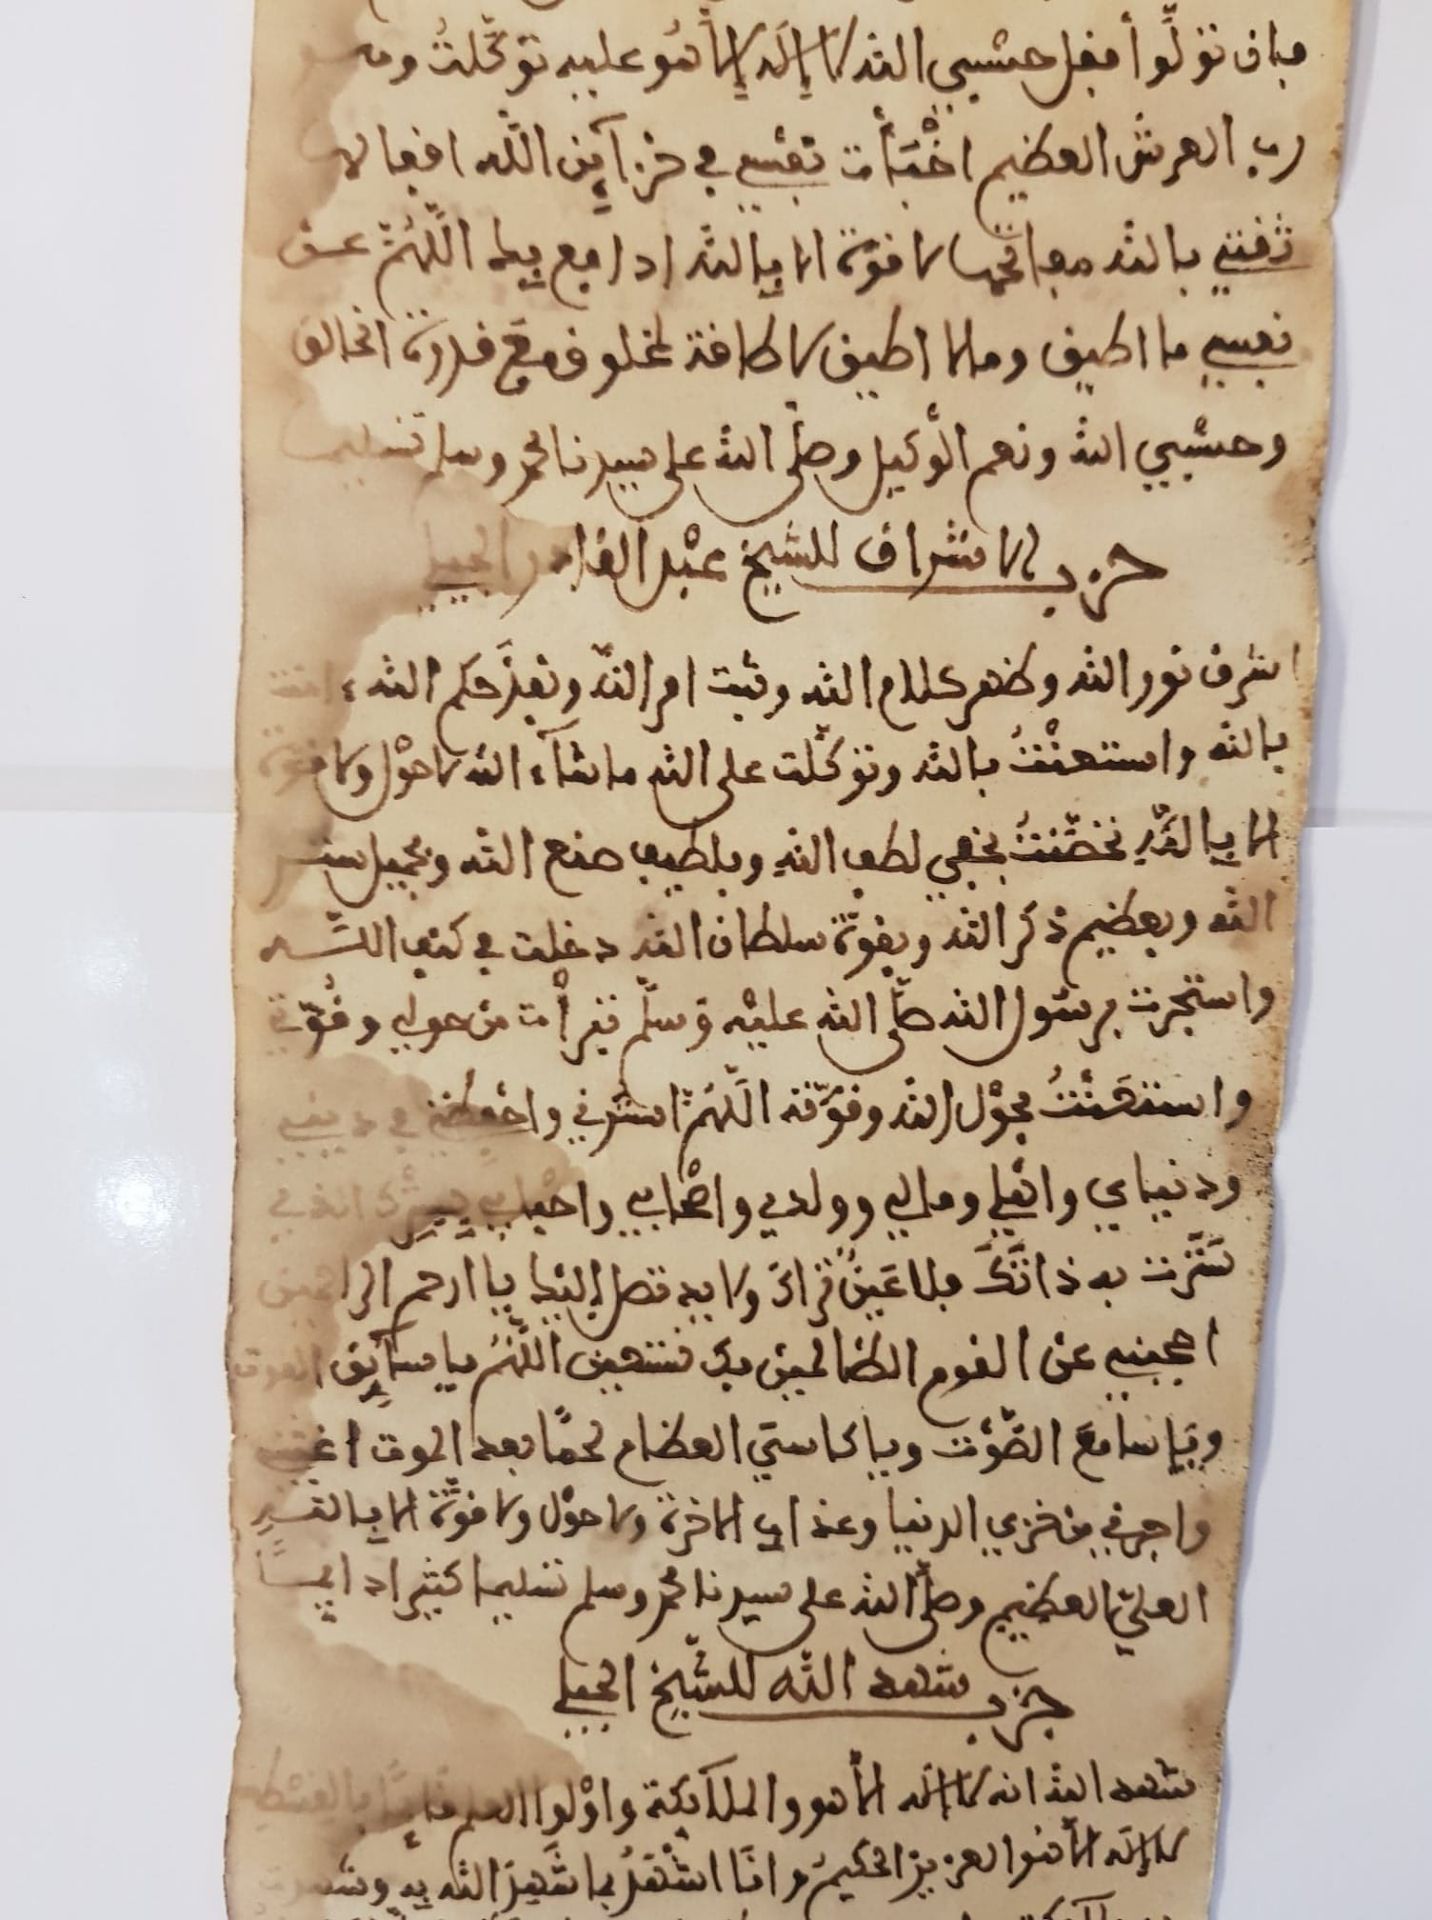 فإن تولّوا فقل حسبي الله لا إله إلا هو عليه توكّلت وهو
رب العرش العظيم اخْتَبَأْت بنفسي في خزآئن الله اقفالها
ثقتي بالله مفاتحها لا قوّة الا بالله ادافع بك اللّهُمّ عن
نفسي ما اطيق وما لا اطيق لا طاقة لمخلوق مع قدرة الخالق
وحسبي الله ونعم الوكيل وصلّى الله على سيدنا محمد وسلم تسليما
حزب الاشراق للشيخ عبْد القادر الجيلي
اشرق نور الله وظهر كلام الله وثبت امر الله ونفذ حكم الله
بالله واستعنْتُ بالله وتوكّلت على الله ما شآء الله لا حوْل ولا قوّة
الا بالله تحصّنتُ بخفي لطف الله وبلطيف صنع الله وبجميل ستر
الله وبعظيم ذكر الله وبقوّة سلطان الله دخلت في كنف الله
واستجرت برسول الله صلّى الله عليْه وسلّم تبرأْت من حولي وقُوّتي
واستعَنْتُ بحوْل الله وقوّته اللّهُمّ استرني واحْفظني في ديني
ودنياي واهلي ومالي وولدي واصْحابي واحْبابي بسترك الذي
سَتَرت به ذاتَكَ فلا عَيْنٌ تراك ولا يد تصل إليك يا ارحم الراحمين
احجبني عن القوم الظالمين بك نستعين اللّهُمّ يا سآئق الفوت
ويَا سامعَ الصّوْت ويا كاسي العظام لحمًا بعد الموت اغثني
واجرني من خزي الدنيا وعذاب الاخرة ولا حوْل ولا قوّة الا بالله
العليّ العظيم وصلّى الله على سيدنا محمد وسلم تسليما كثيرا دايمًا
حزب شهد الله للشّيخ الجيلي
شهد الله انه لا اله الا هو والملآئكة واوْلوا العلم قآئمًا بالقسْط
لا إله الا هُو العزيز الحكيم وانَا اشْهَدُ بما شَهِدَ الله به